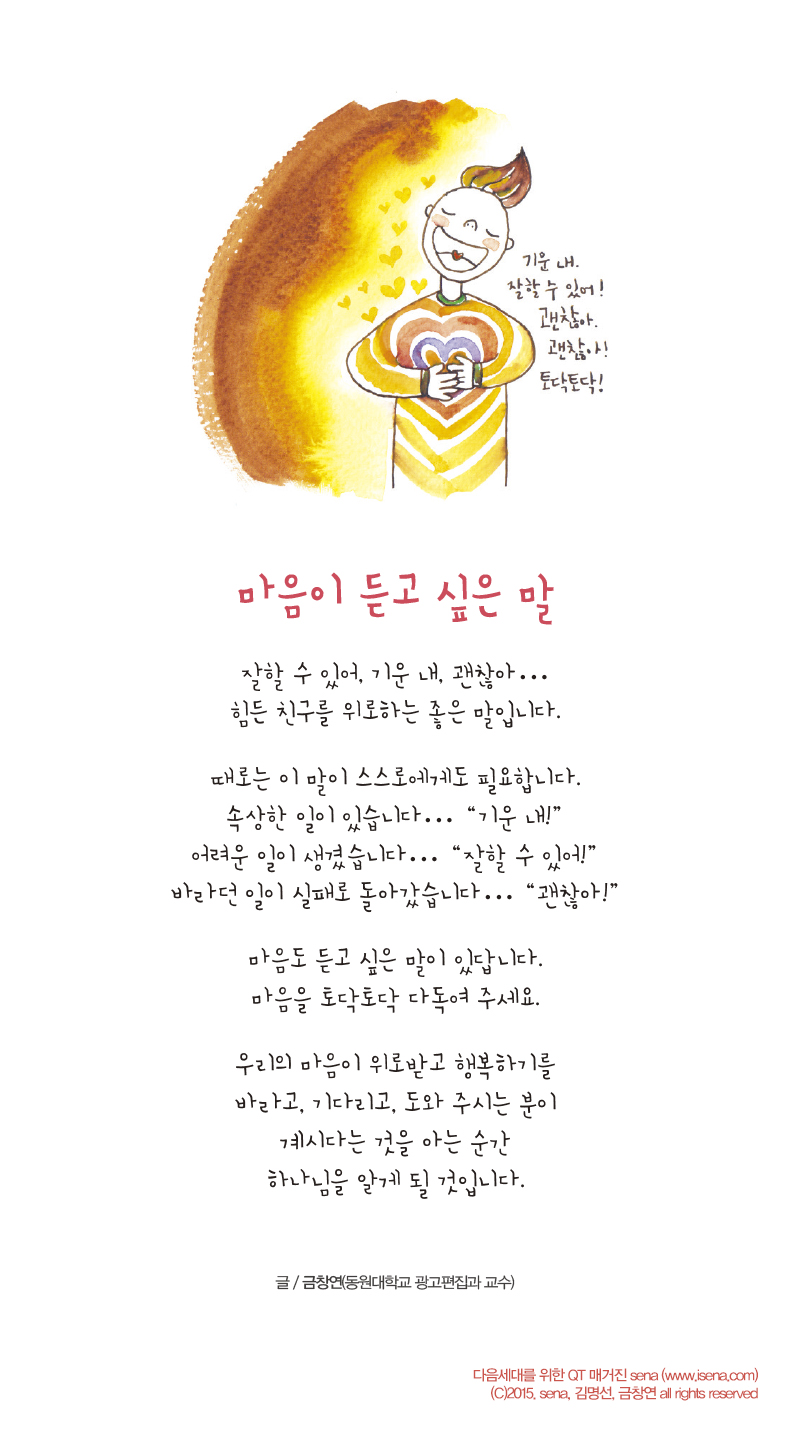 기운 내.
잘할 수 있어!
괜찮아.
괜찮아!
토닥토닥!
마음이 듣고 싶은 말
잘할 수 있어, 기운 내, 괜찮아...
힘든 친구를 위로하는 좋은 말입니다.
때로는 이 말이 스스로에게도 필요합니다.
속상한 일이 있습니다... “기운 내!”
어려운 일이 생겼습니다... “잘할 수 있어!”
바라던 일이 실패로 돌아갔습니다... “괜찮아!”
마음도 듣고 싶은 말이 있답니다.
마음을 토닥토닥 다독여 주세요.
우리의 마음이 위로받고 행복하기를
바라고, 기다리고, 도와 주시는 분이
계시다는 것을 아는 순간
하나님을 알게 될 것입니다.
글 / 금창연(동원대학교 광고편집과 교수)
다음세대를 위한 QT 매거진 sena (www.isena.com)
(C)2015, sena, 김명선, 금창연 all rights reserved